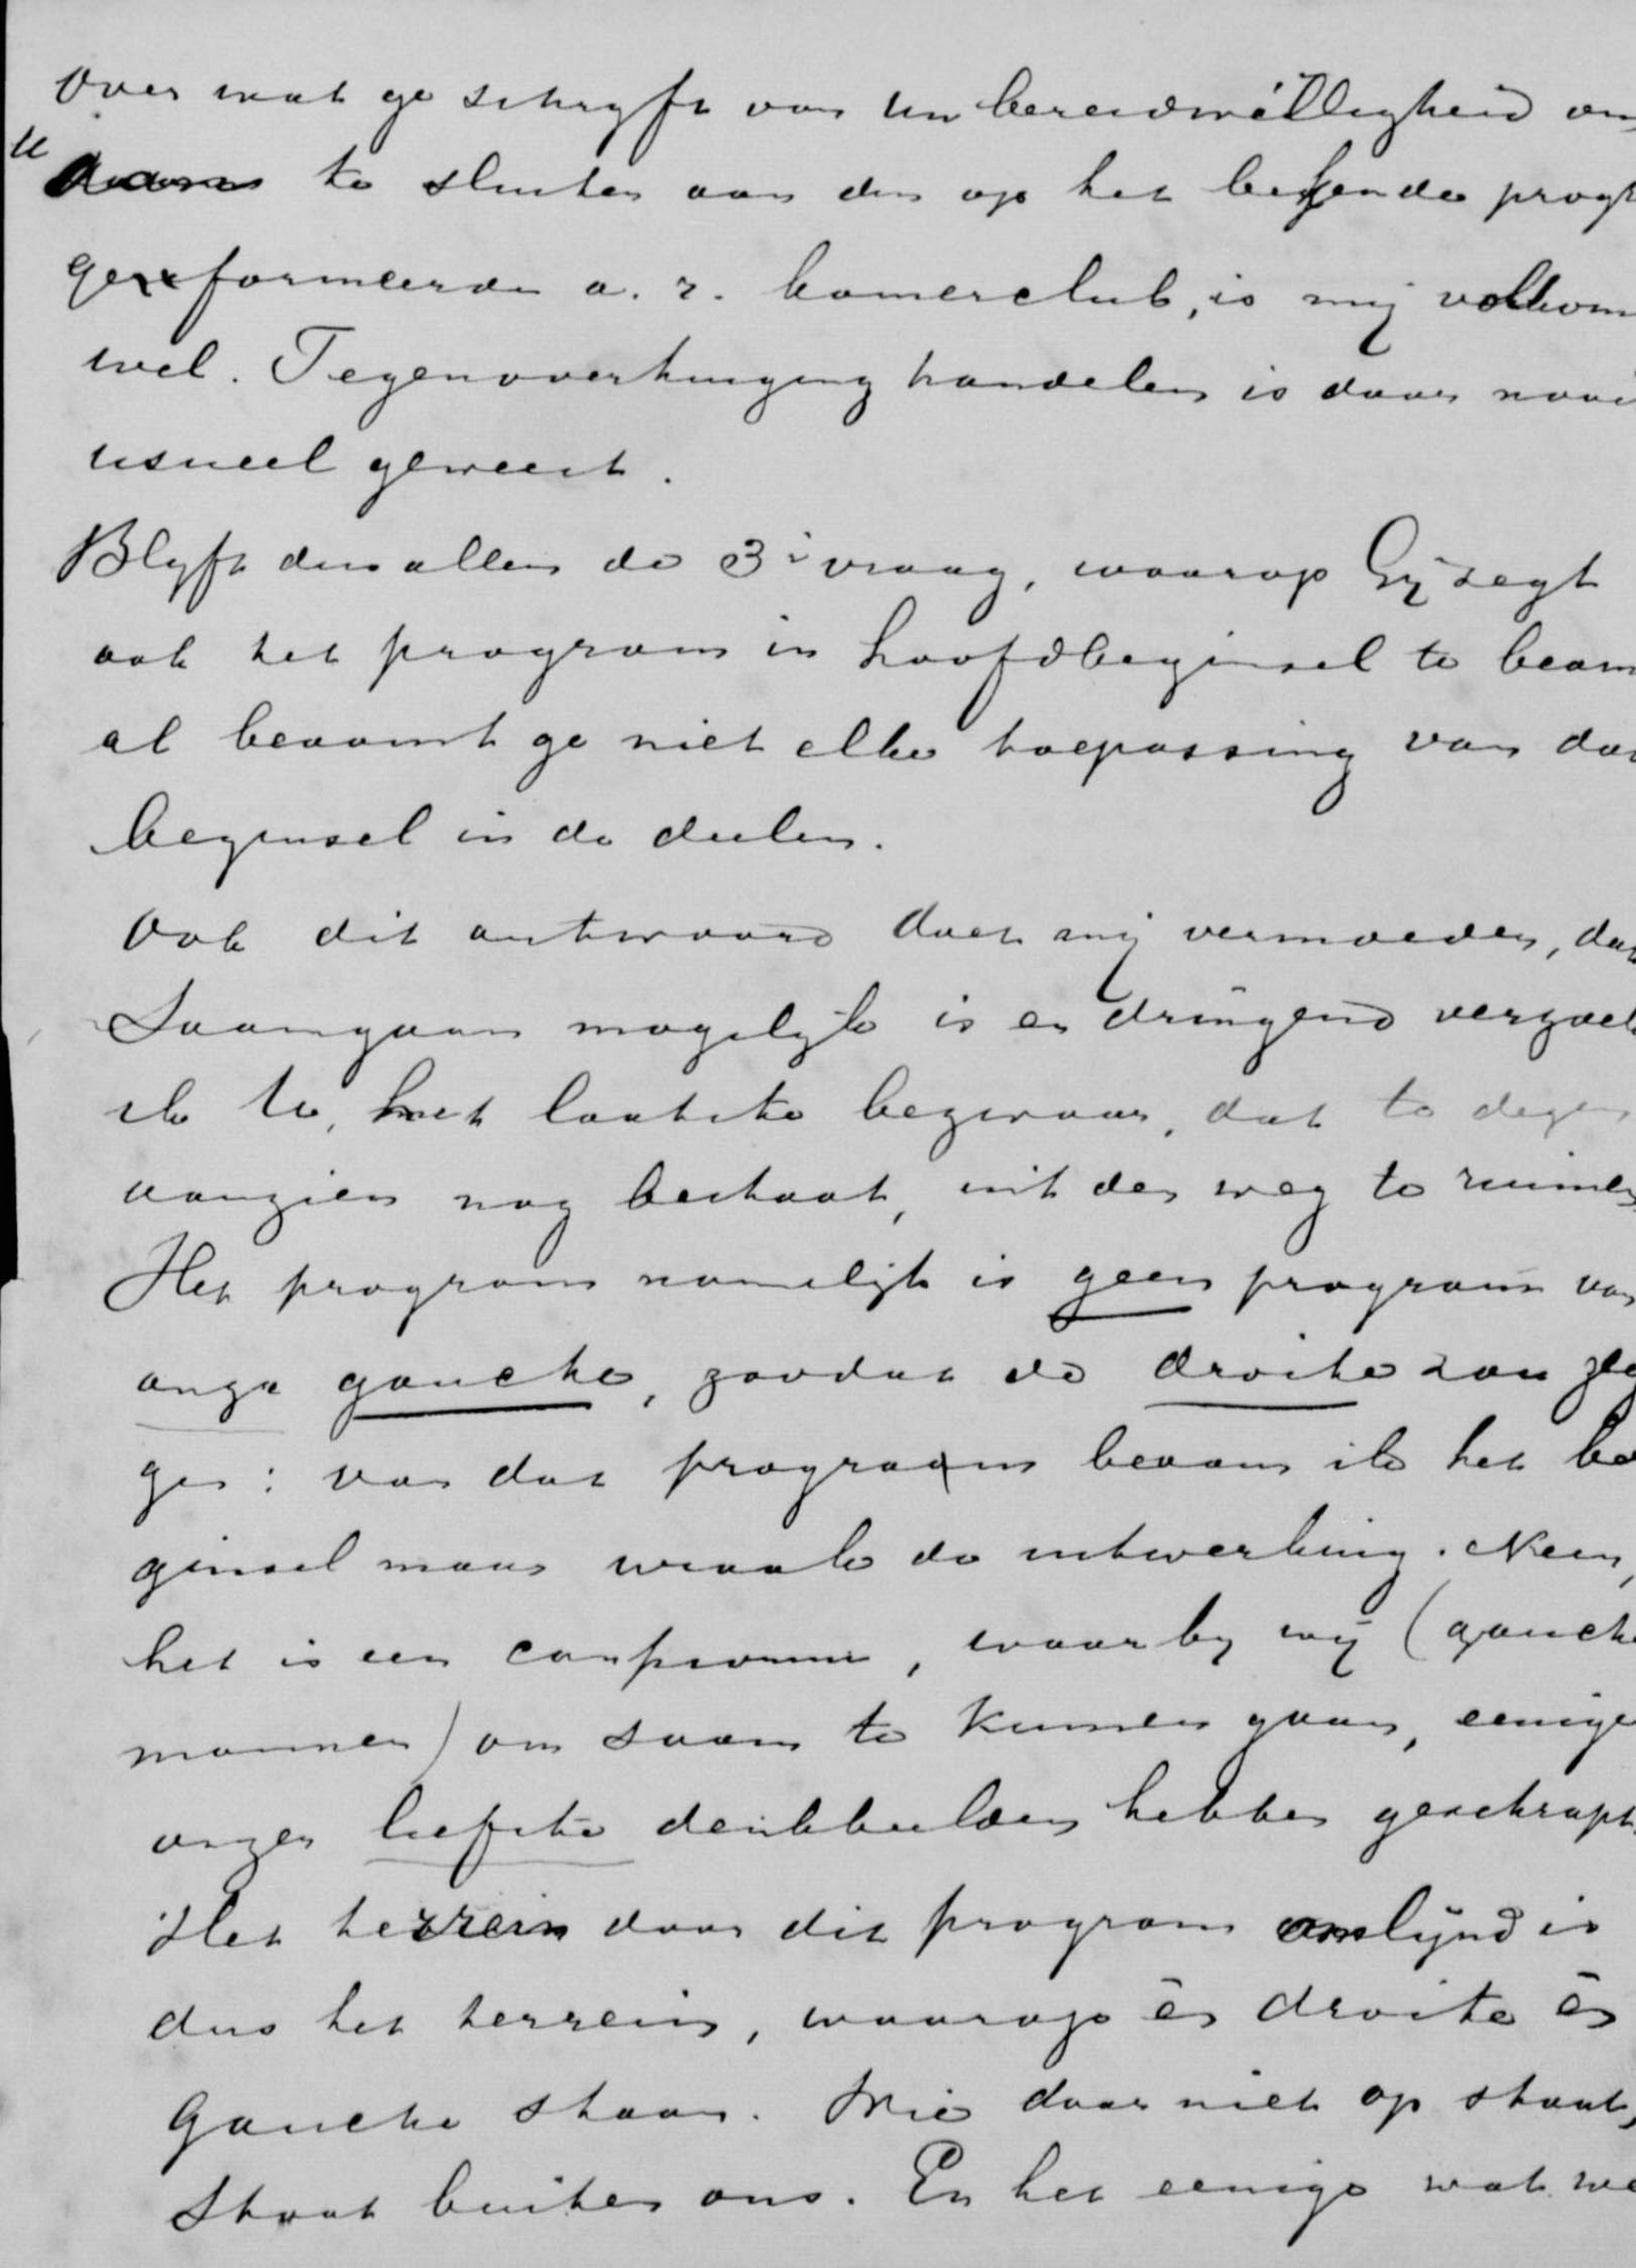 Over wat ge schryft van Uw bereidwilligheid om
U
te sluiten aan den op het bekende progr
gereformeerde a. r. kamerclub, is mij volkom
wel. Tegenoverhuging handelen is daar nooi
usueel geweest.
Blyft dus alleen de 3e vraag, waarop Gij zegt
ook het program in hoofdbeginsel te beam
al beaamt ge niet elke toepassing van dat
beginsel in de deelen.
Ook dit antwoord doet mij vermoeden, dat
Saamgaan mogelyk is en dringend verzoek
ik U, het laatste bezwaar, dat te dezen
aanzien nog bestaat, uit den weg te ruimen
Het program namelijk is geen program van
onze gauche, zoodat de droite zou zeg
gen: van dat program beaam ik het be
ginsel maar wraak de uitwerking. Neen,
het is een compromis, waarby wij (gauche
mannen) om saam te kunnen gaan, eenige
onzer liefste denkbeelden hebben geschrapt.
Het terrein door dit program omlijnd is
dus het terrein, waarop én droite én
gauche staan. Wie daar niet op staat,
Staat buiten ons. En het eenige wat we